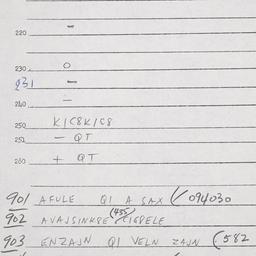 220 -
230 O
231 -
240 -
250 K/C8K/C8
251 - QT
260 + QT
901 AFULE QI A SAX (/094030
902 AVAJSINKPE (455) CIGPELE
903 ENZAJN QI VELN ZAJN (582